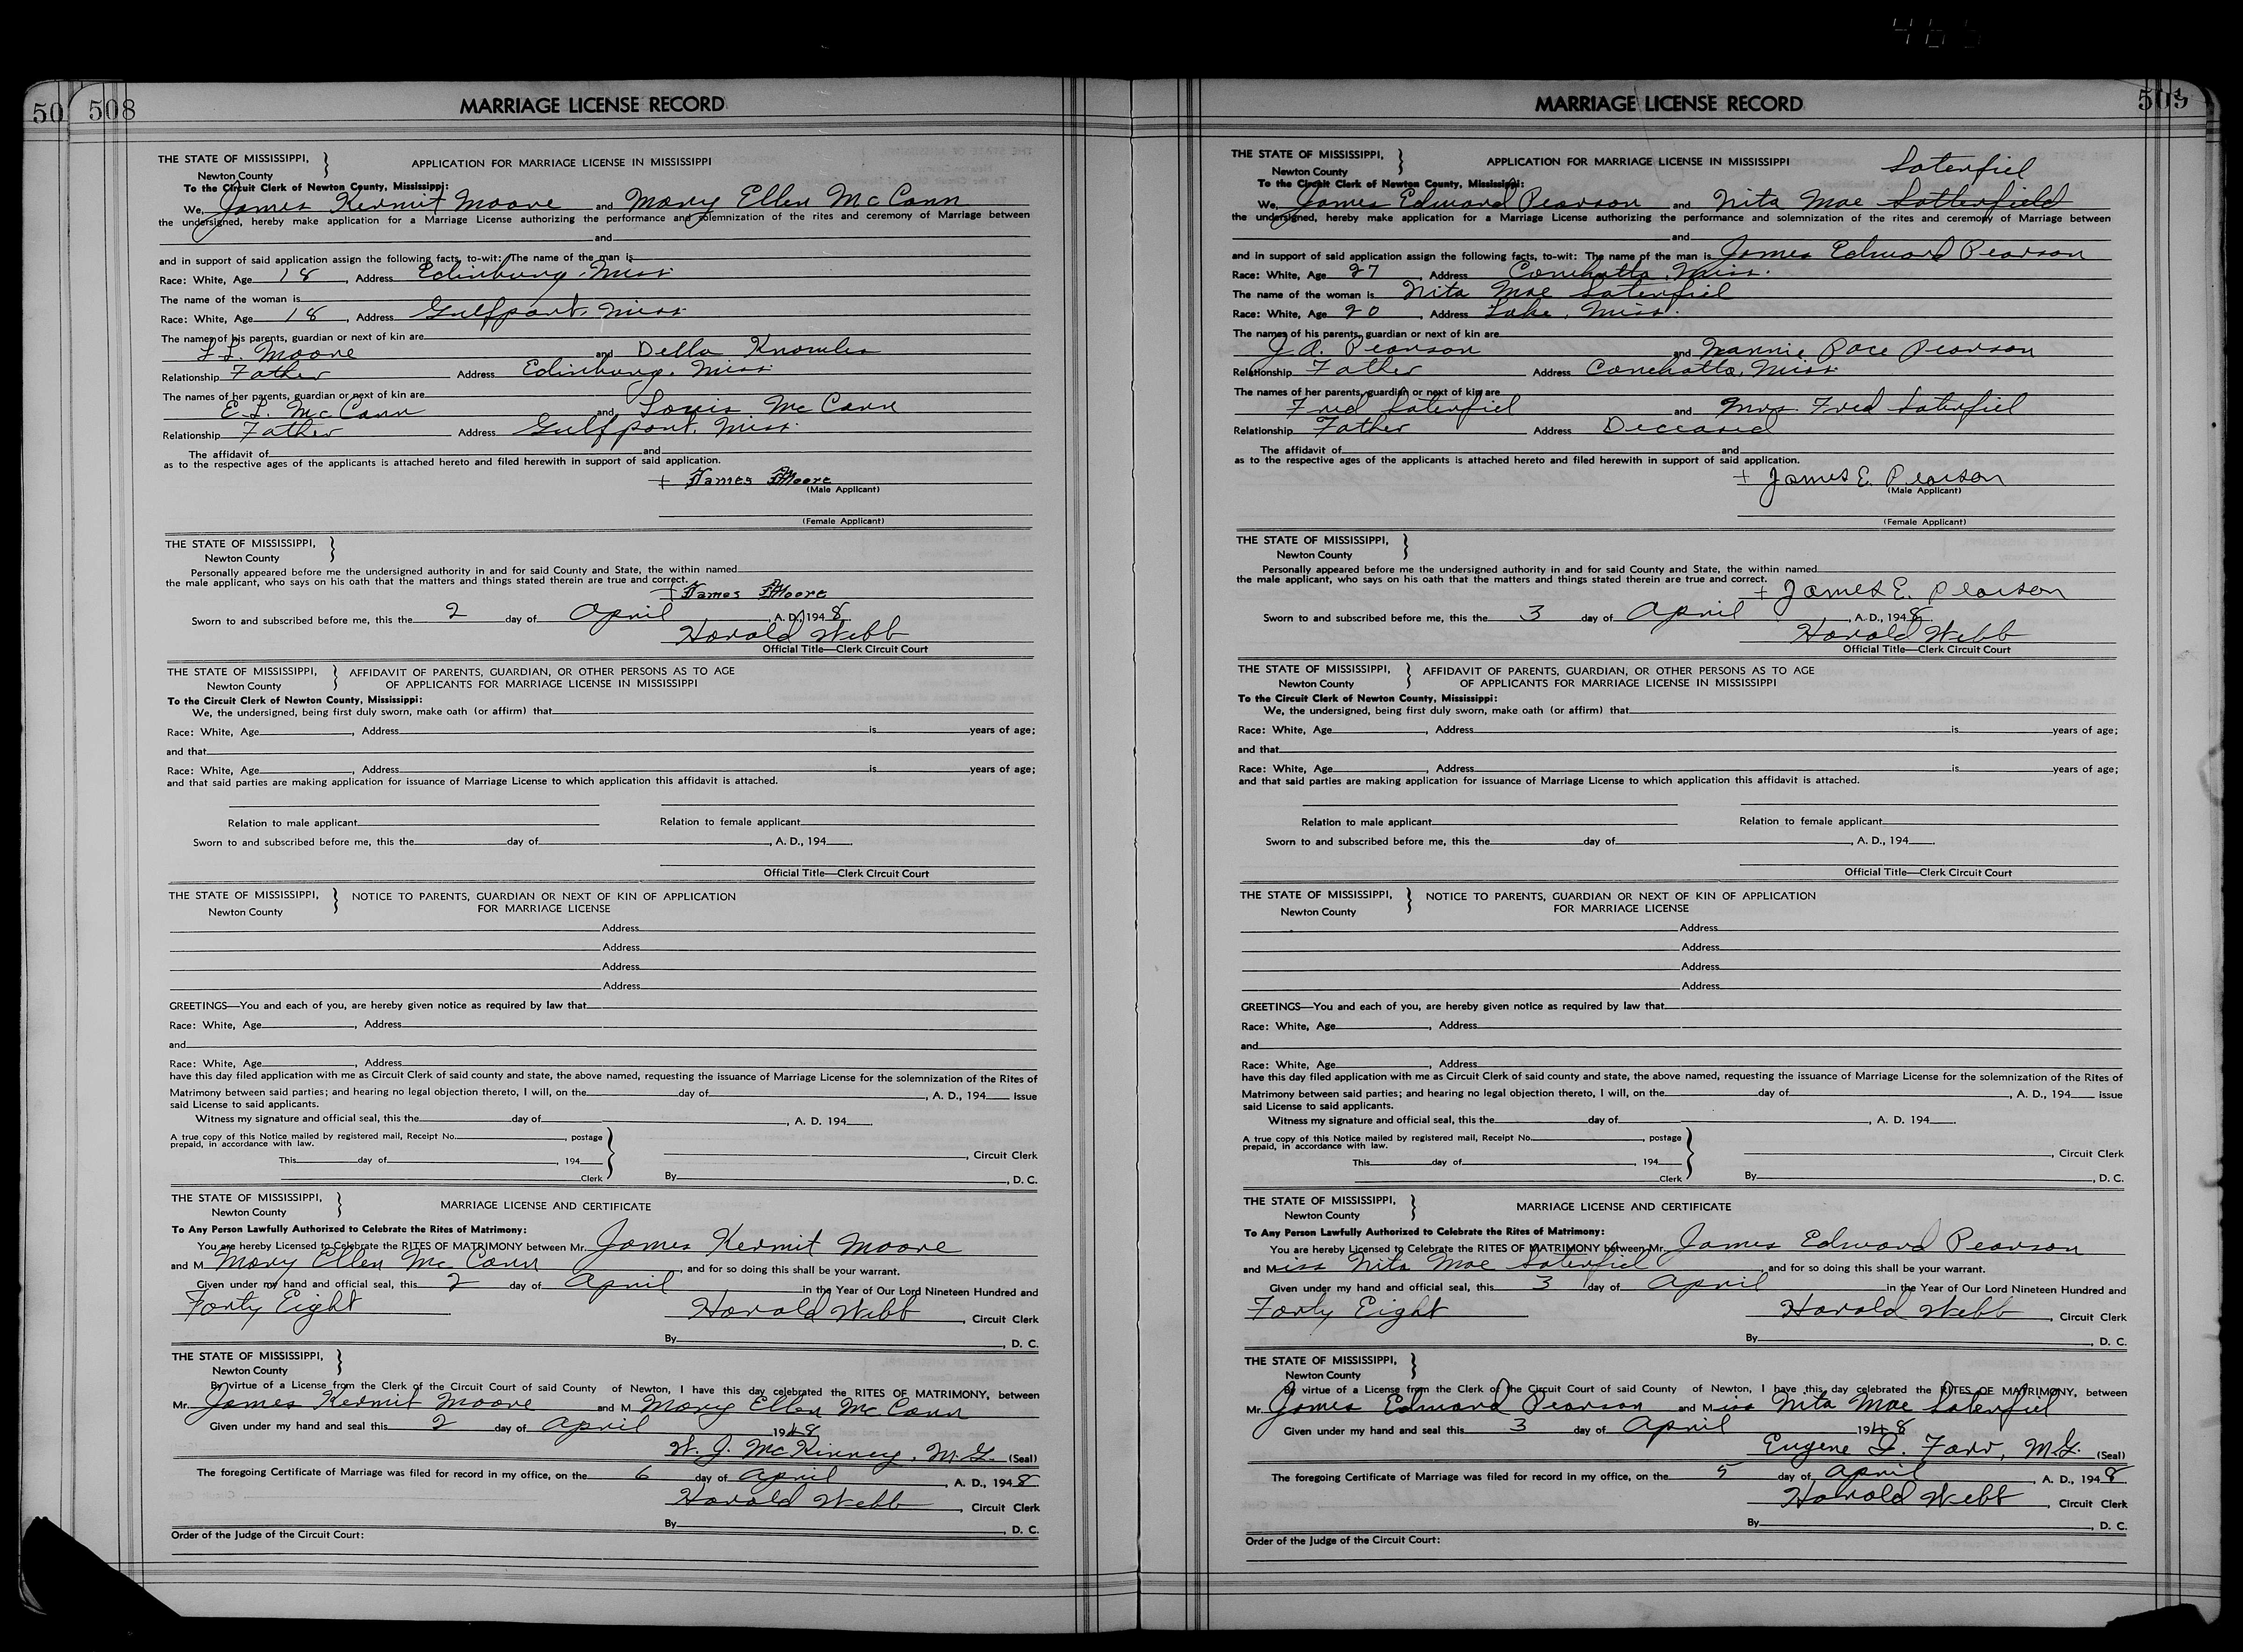 50 508
MARRIAGE LICENSE RECORD
THE STATE OF MISSISSIPPI,
Newton County
APPLICATION FOR MARRIAGE LICENSE IN MISSISSIPPI
To the Circuit Clerk of Newton County, Mississippi:
We, James Kermit Moore and Mary Ellen McCann
the undersigned, hereby make application for a Marriage License authorizing the performance and solemnization of the rites and ceremony of Marriage between
and
and in support of said application assign the following facts, to-wit: The name of the man is
Race: White, Age 18, Address Edinburg, Miss.
The name of the woman is
Race: White, Age 18, Address Gulfport, Miss.
The names of his parents, guardian or next of kin are
L.L. Moore and Della Knowles
Relationship Father Address Edinburg, Miss.
The names of her parents, guardian or next of kin are
E.L. McCann and Louis McCann
Relationship Father Address Gulfport, Miss.
The affidavit of and
as to the respective ages of the applicants is attached hereto and filed herewith in support of said application.
+ James Moore
(Male Applicant)
(Female Applicant)
THE STATE OF MISSISSIPPI,
Newton County
Personally appeared before me the undersigned authority in and for said County and State, the within named
the male applicant, who says on his oath that the matters and things stated therein are true and correct.
+ James Moore
Sworn to and subscribed before me, this the 2 day of April, A. D., 1948
Harold Webb
Official Title—Clerk Circuit Court
THE STATE OF MISSISSIPPI,
Newton County
AFFIDAVIT OF PARENTS, GUARDIAN, OR OTHER PERSONS AS TO AGE
OF APPLICANTS FOR MARRIAGE LICENSE IN MISSISSIPPI
To the Circuit Clerk of Newton County, Mississippi:
We, the undersigned, being first duly sworn, make oath (or affirm) that
Race: White, Age, Address is years of age;
and that
Race: White, Age, Address is years of age;
and that said parties are making application for issuance of Marriage License to which application this affidavit is attached.
Relation to male applicant Relation to female applicant
Sworn to and subscribed before me, this the day of, A. D., 194
Official Title—Clerk Circuit Court
THE STATE OF MISSISSIPPI,
Newton County
NOTICE TO PARENTS, GUARDIAN OR NEXT OF KIN OF APPLICATION
FOR MARRIAGE LICENSE
Address
Address
Address
Address
GREETINGS—You and each of you, are hereby given notice as required by law that
Race: White, Age, Address
and
Race: White, Age, Address
have this day filed application with me as Circuit Clerk of said county and state, the above named, requesting the issuance of Marriage License for the solemnization of the Rites of
Matrimony between said parties; and hearing no legal objection thereto, I will, on the day of, A. D., 194 issue
said License to said applicants.
Witness my signature and official seal, this the day of, A. D. 194
A true copy of this Notice mailed by registered mail, Receipt No., postage
prepaid, in accordance with law.
This day of, 194
, Circuit Clerk
Clerk By, D. C.
THE STATE OF MISSISSIPPI,
Newton County
MARRIAGE LICENSE AND CERTIFICATE
To Any Person Lawfully Authorized to Celebrate the Rites of Matrimony:
You are hereby Licensed to Celebrate the RITES OF MATRIMONY between Mr. James Kermit Moore
and M Mary Ellen McCann, and for so doing this shall be your warrant.
Given under my hand and official seal, this 2 day of April in the Year of Our Lord Nineteen Hundred and
Forty Eight Harold Webb, Circuit Clerk
By, D. C.
THE STATE OF MISSISSIPPI,
Newton County
By virtue of a License from the Clerk of the Circuit Court of said County of Newton, I have this day celebrated the RITES OF MATRIMONY, between
Mr. James Kermit Moore and M Mary Ellen McCann
Given under my hand and seal this 2 day of April 1948
W. J. McKinney, M.G. (Seal)
The foregoing Certificate of Marriage was filed for record in my office, on the 6 day of April, A. D., 1948
Harold Webb, Circuit Clerk
By, D. C.
Order of the Judge of the Circuit Court:
MARRIAGE LICENSE RECORD
THE STATE OF MISSISSIPPI,
Newton County
APPLICATION FOR MARRIAGE LICENSE IN MISSISSIPPI
Saterfiel
To the Circuit Clerk of Newton County, Mississippi:
We, James Edward Pearson and Nita Mae Satterfield
the undersigned, hereby make application for a Marriage License authorizing the performance and solemnization of the rites and ceremony of Marriage between
and
and in support of said application assign the following facts, to-wit: The name of the man is James Edward Pearson
Race: White, Age 27, Address Conehatta, Miss.
The name of the woman is Nita Mae Saterfiel
Race: White, Age 20, Address Lake, Miss.
The names of his parents, guardian or next of kin are
J.A. Pearson and Nannie Pace Pearson
Relationship Father Address Conehatta, Miss.
The names of her parents, guardian or next of kin are
Fred Saterfiel and Mrs. Fred Saterfiel
Relationship Father Address Deceased
The affidavit of and
as to the respective ages of the applicants is attached hereto and filed herewith in support of said application.
+ James E. Pearson
(Male Applicant)
(Female Applicant)
THE STATE OF MISSISSIPPI,
Newton County
Personally appeared before me the undersigned authority in and for said County and State, the within named
the male applicant, who says on his oath that the matters and things stated therein are true and correct.
+ James E. Pearson
Sworn to and subscribed before me, this the 3 day of April, A. D., 1948
Harold Webb
Official Title—Clerk Circuit Court
THE STATE OF MISSISSIPPI,
Newton County
AFFIDAVIT OF PARENTS, GUARDIAN, OR OTHER PERSONS AS TO AGE
OF APPLICANTS FOR MARRIAGE LICENSE IN MISSISSIPPI
To the Circuit Clerk of Newton County, Mississippi:
We, the undersigned, being first duly sworn, make oath (or affirm) that
Race: White, Age, Address is years of age;
and that
Race: White, Age, Address is years of age;
and that said parties are making application for issuance of Marriage License to which application this affidavit is attached.
Relation to male applicant Relation to female applicant
Sworn to and subscribed before me, this the day of, A. D., 194
Official Title—Clerk Circuit Court
THE STATE OF MISSISSIPPI,
Newton County
NOTICE TO PARENTS, GUARDIAN OR NEXT OF KIN OF APPLICATION
FOR MARRIAGE LICENSE
Address
Address
Address
Address
GREETINGS—You and each of you, are hereby given notice as required by law that
Race: White, Age, Address
and
Race: White, Age, Address
have this day filed application with me as Circuit Clerk of said county and state, the above named, requesting the issuance of Marriage License for the solemnization of the Rites of
Matrimony between said parties; and hearing no legal objection thereto, I will, on the day of, A. D., 194 issue
said License to said applicants.
Witness my signature and official seal, this the day of, A. D. 194
A true copy of this Notice mailed by registered mail, Receipt No., postage
prepaid, in accordance with law.
This day of, 194
, Circuit Clerk
Clerk By, D. C.
THE STATE OF MISSISSIPPI,
Newton County
MARRIAGE LICENSE AND CERTIFICATE
To Any Person Lawfully Authorized to Celebrate the Rites of Matrimony:
You are hereby Licensed to Celebrate the RITES OF MATRIMONY between Mr. James Edward Pearson
and Miss Nita Mae Saterfiel, and for so doing this shall be your warrant.
Given under my hand and official seal, this 3 day of April in the Year of Our Lord Nineteen Hundred and
Forty Eight Harold Webb, Circuit Clerk
By, D. C.
THE STATE OF MISSISSIPPI,
Newton County
By virtue of a License from the Clerk of the Circuit Court of said County of Newton, I have this day celebrated the RITES OF MATRIMONY, between
Mr. James Edward Pearson and Miss Nita Mae Saterfiel
Given under my hand and seal this 3 day of April 1948
Eugene I. Farr, M.G. (Seal)
The foregoing Certificate of Marriage was filed for record in my office, on the 5 day of April, A. D., 1948
Harold Webb, Circuit Clerk
By, D. C.
Order of the Judge of the Circuit Court: